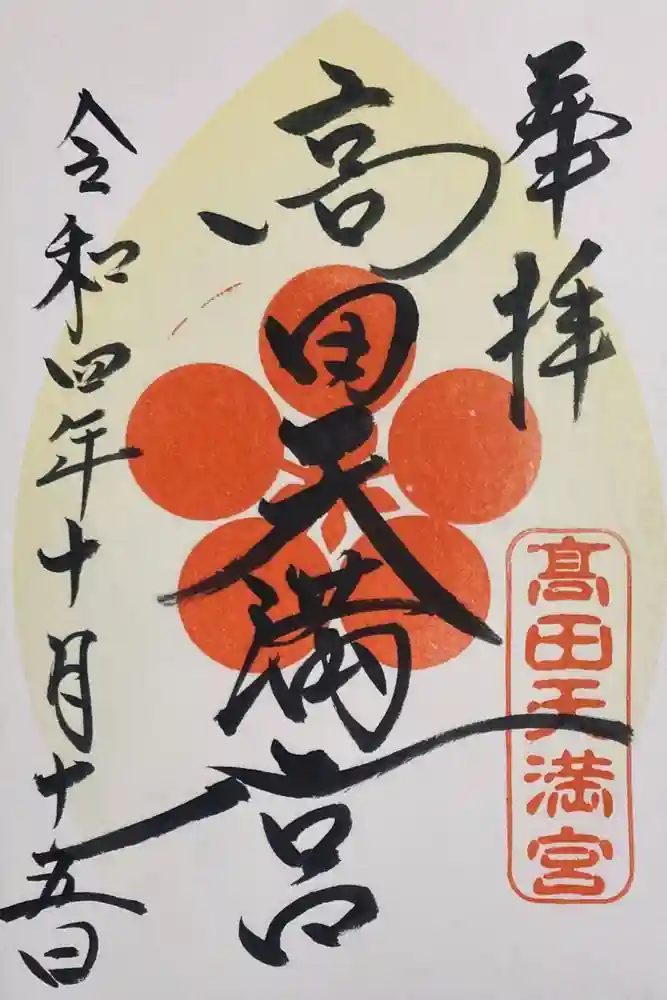 奉拝
高田天満宮
髙田天満宮
令和四年十月十五日